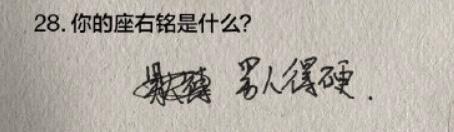 28.你的座右铭是什么?
男人得硬.